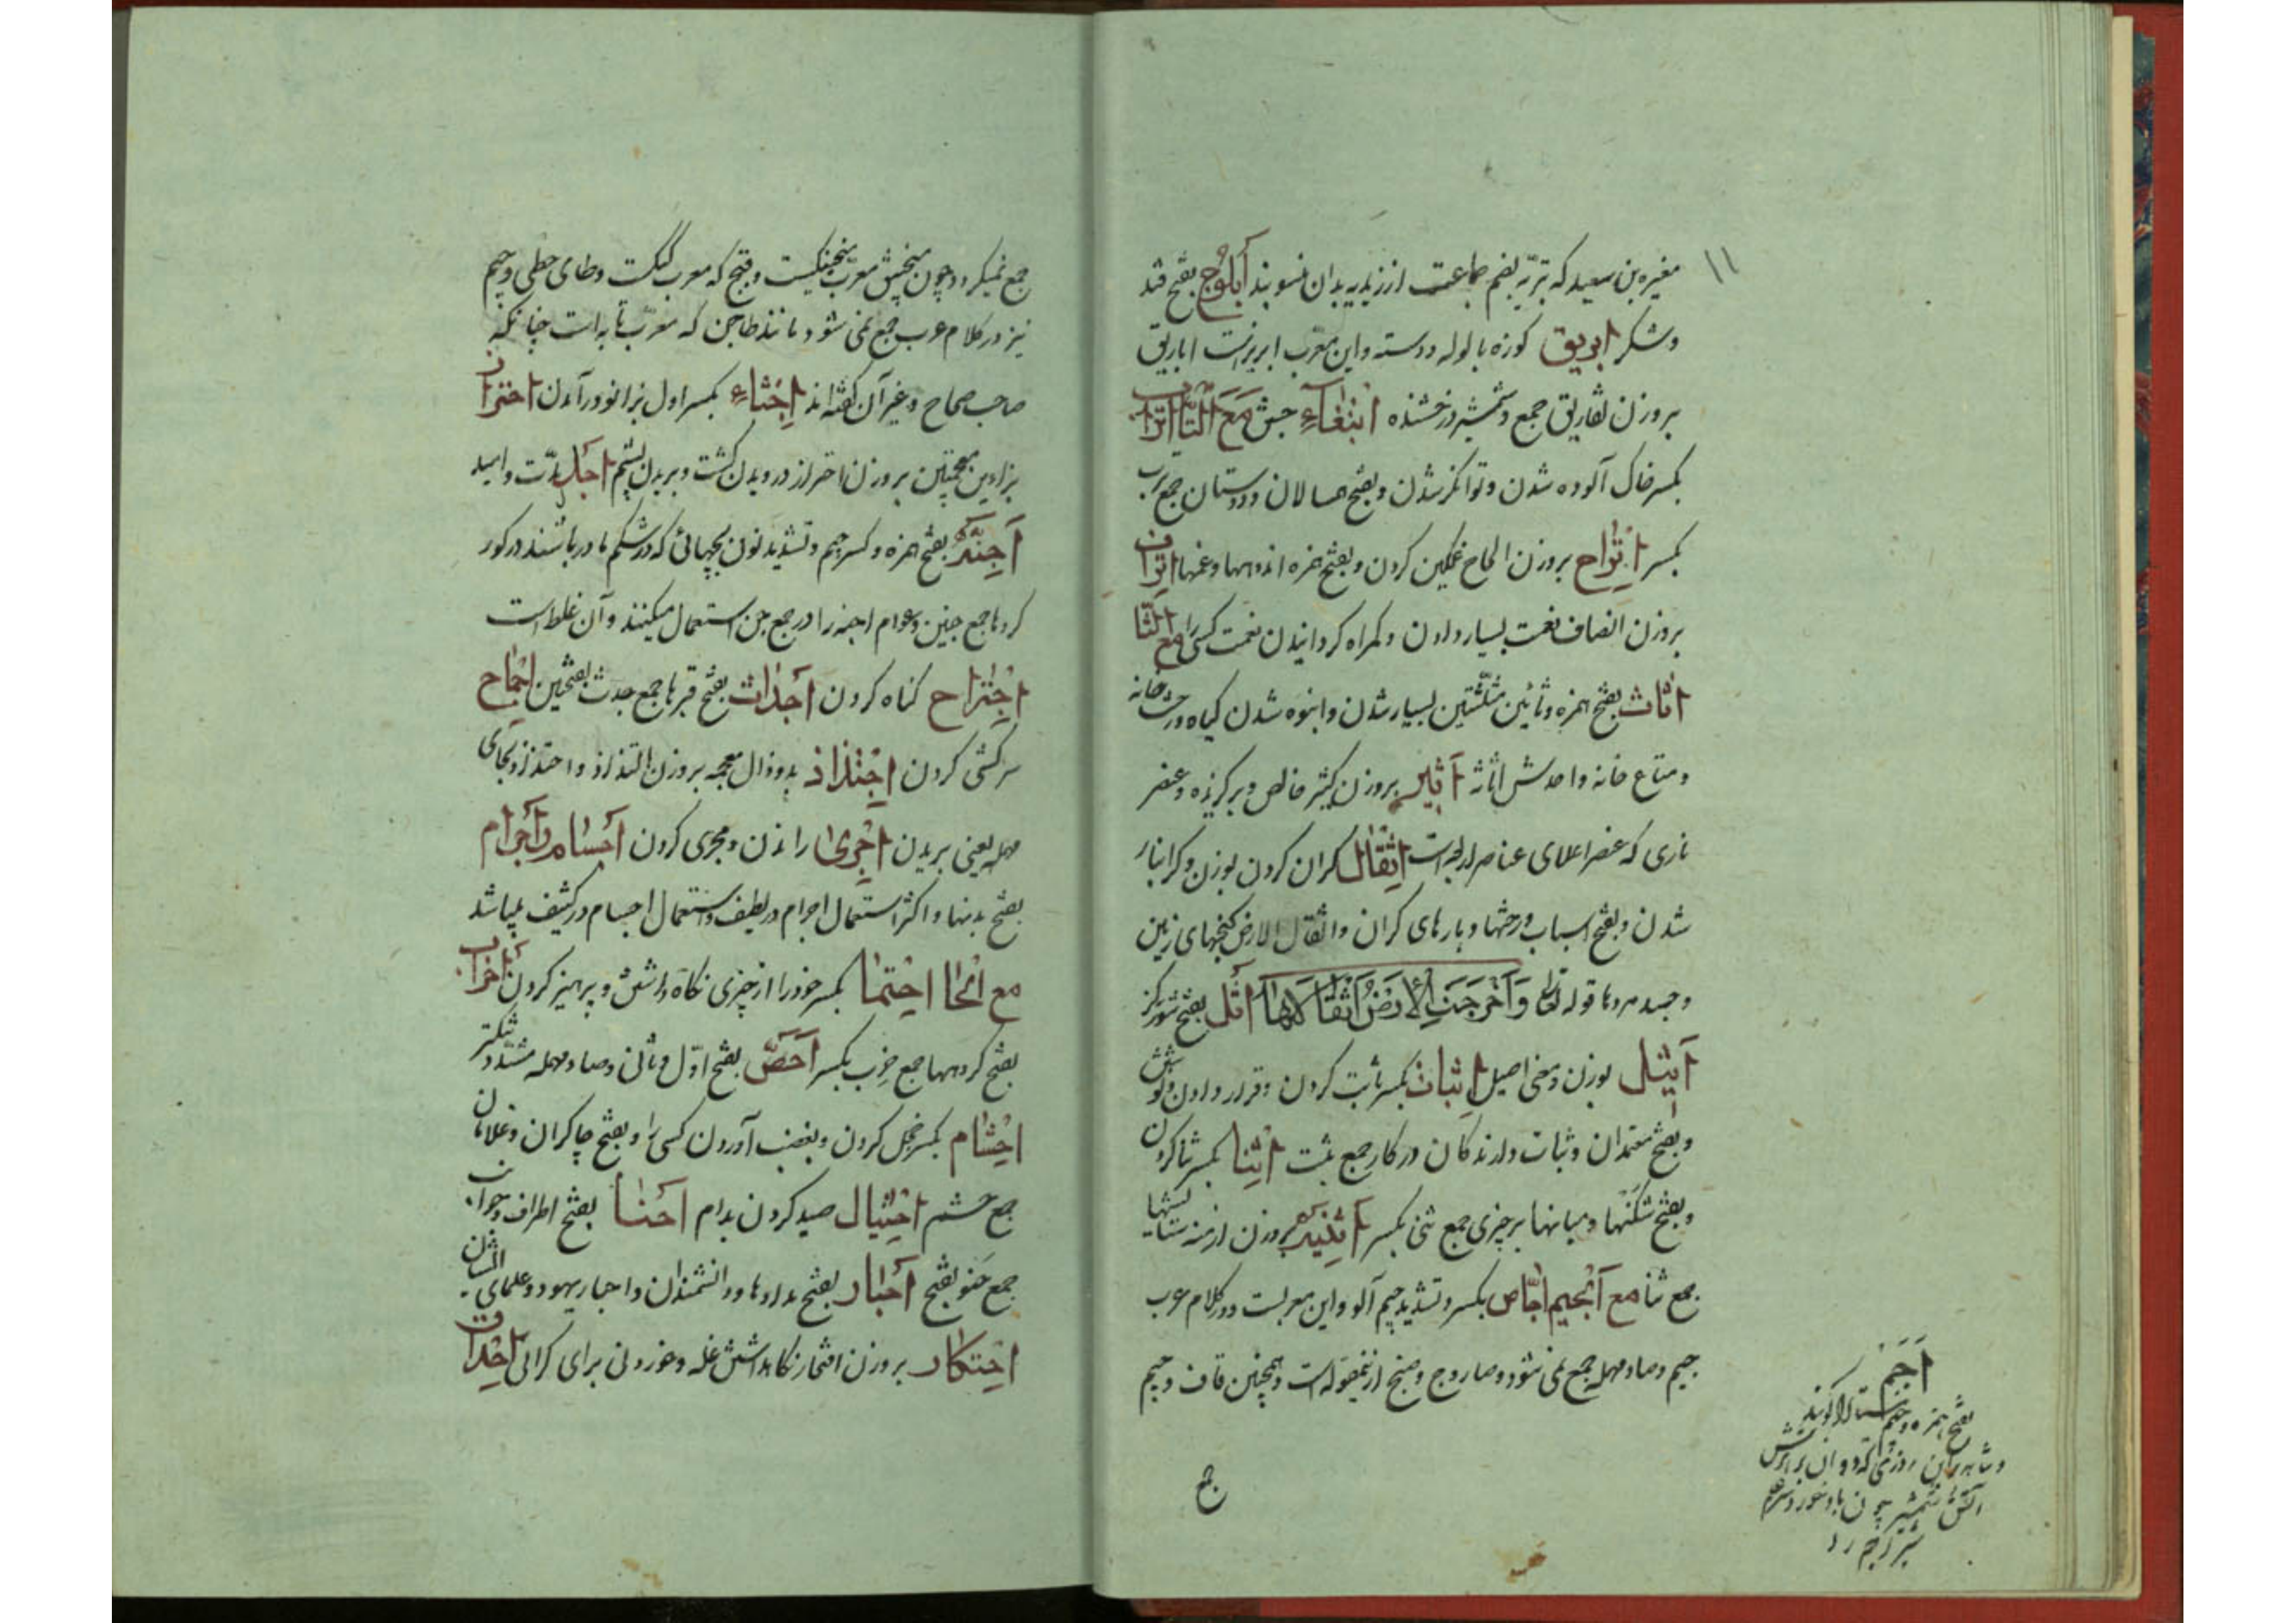 ۱۱
مغیره بن سعید که بتریه بضم جماعت از زیدیه بدان منسوبند اَبلُوج بفتح قند
و شکر ابریق کوزه با لوله و دسته و این معرب ابریزست اباریق
بروزن تفاریق جمع و شمشیر درخشنده ابتغاء جستن مع التّا اتراب
بکسر خاک آلوده شدن و توانگر شدن و بفتح همسالان و دوستان جمع ترب
بکسر اتراح بروزن الحاح غمگین کردن و بفتح همزه اندوهها و غمها اتراف
بروزن انصاف نعمت بسیار دادن و گمراه گردانیدن نعمت کسی را مع الثا
اثاث بفتح همزه و ثائین مثلثتین بسیار شدن و انبوه شدن گیاه و رخت خانه
و متاع خانه واحدش اثاثه اثیر بروزن کثیر خالص و برگزیده و عنصر
ناری که عنصر اعلای عناصر اربعه است اثقال گران کردن بوزن و گرانبار
شدن و بفتح اسباب و رختها و بارهای گران و اثقال الارض گنجهای زمین
و جسد مردها قوله تعالی وَاَخْرَجَتِ الْاَرْضُ اَثْقَالَهَا اثل بفتح شورگز
اثیل بوزن و معنی اصیل اثبات بکسر ثابت کردن و قرار دادن و نوشتن
و بفتح معتمدان و ثبات دارندگان در کار جمع ثبت اثنا بکسر ثنا کردن
و بفتح شکنها و میانها بر چیزی جمع ثنی بکسر اثنیه بروزن ازمنه ستایشها
جمع ثنا مع الجیم اجّاص بکسر و تشدید جیم آلو و این معربست و در کلام عرب
جیم و صاد مهمله جمع نمی شود و صاروج و صنج ازینمقوله است و همچنین قاف و جیم
جمع
اَجَم
بفتح همزه و جیم
جمع نمیگردد چون منجنیق معرب منجنیکست و قبج که معرب کبکست و طای حطی و جیم
نیز در کلام عرب جمع نمی شود مانند طاجن که معرب تابه است چنانکه
صاحب صحاح و غیر آن گفته اند اجثاء بکسر اول بزانو درآمدن اجتزاز
بزائین معجمتین بروزن احتراز درویدن کشت و بریدن پشم اجل مدّت و امید
اَجِنَّه بفتح همزه و کسر جیم و تشدید نون بچهائی که در شکم مادر باشند و در گور
کردها جمع جنین و عوام اجنه را در جمع جن استعمال میکنند و آن غلط است
اجتراح گناه کردن اجداث بفتح قبرها جمع جدث بفتحتین اجماح
سرکشی کردن اجتذاذ بدو ذال معجمه بروزن التذاذ و اجتزاز بجای
مهمله یعنی بریدن اجری راندن و مجری کردن اجسام و اجرام
بفتح بدنها و اکثر استعمال اجرام در لطیف و استعمال اجسام در کثیف میباشد
مع الحا احتما بکسر خود را از چیزی نگاه داشتن و پرهیز کردن احزاب
بفتح گروهها جمع حزب بکسر اَحَصّ بفتح اوّل و ثانی و صاد مهمله مشدّد
احتشام بکسر خجل کردن و بغضب آوردن کسی را و بفتح چاکران و غلامان
جمع حشم احتیال صید کردن بدام احنا بفتح اطراف و جوانب
جمع حنو بفتح احبار بفتح مدادها و دانشمندان و احبار یهود و علمای ایشان
احتکار بروزن افتخار نگاهداشتن غله و خوردنی برای گرانی احداق